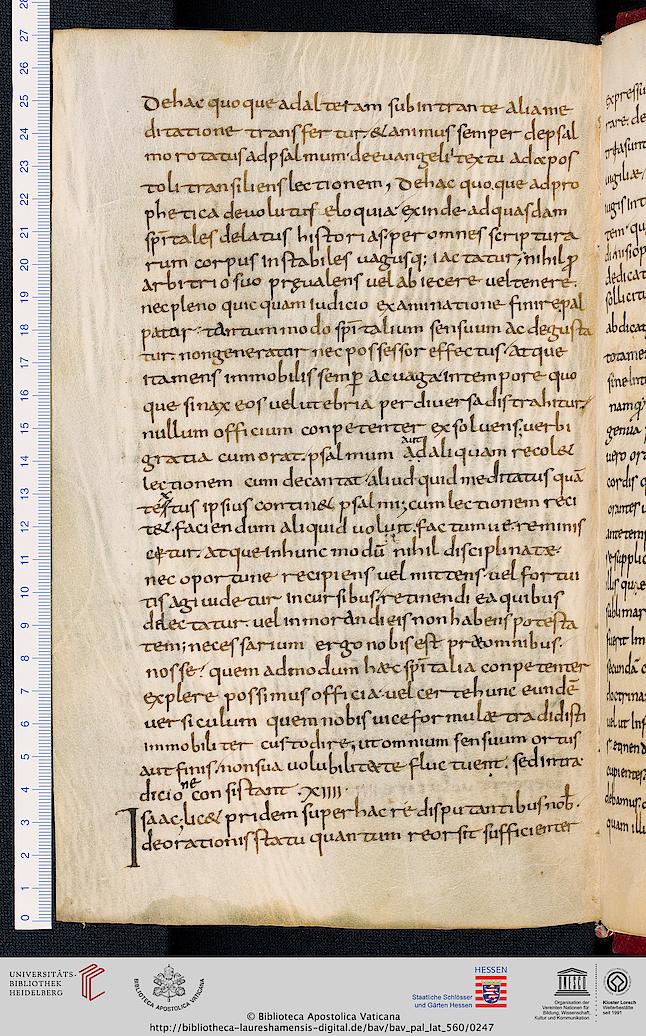 De hac quoque ad alteram subintrante alia me
ditatione transfertur, & animus semper de psal
mo rotatus ad psalmum, de euangelii textu ad apos
toli transiliens lectionem, De hac quoque ad pro
phetica deuolutus eloquia, exinde ad quasdam
sp̄ritales delatus historias, per omnes scriptura
rum corpus instabiles uagusq; iactatur, nihil ꝓ
arbitrio suo preualens uel abiecere uel tenere,
nec pleno quicquam iudicio examinatione finire, pal
patur tantummodo sp̄ritalium sensuum ac degusta
tur, non generatur nec possessor effectus, Atque
ita mens immobilis semꝑ ac uaga in tempore quo
que sinaxeos uelut ebria per diuersa distrahitur,
nullum officium conpetenter exsoluens, uerbi
gratia cum orat, psalmum aut ad aliquam recol&
lectionem cum decantat, aliud quid meditatus quā
textus ipsius contin& psalmi; cum lectionem reci
t&, faciendum aliquid uoluit, factum ue reminis
citur, atque in hunc modū nihil disciplinatae
nec oportune recipiens uel mittens, uel fortui
tis agi uidetur incursibus, retinendi ea quibus
delectatur, uel inmorandi eis non habens potesta
tem; necessarium ergo nobis est prae omnibus,
nosse, quem ad modum haec sp̄ritalia conpetenter
explere possimus officia, uel certe hunc eundē
uersiculum quem nobis uice formulae tradidisti
immobiliter custodire, ut omnium sensuum ortus
aut finis, non sua uolubilitate fluctuent, sed in tua
dicione consistant. XIIII.
Isaac; lic& pridem super hac re disputantibus nob̄.
de orationis statu quantum reor sit sufficienter
UNIVERSITÄTS-
BIBLIOTHEK
HEIDELBERG
BIBLIOTHECA APOSTOLICA VATICANA
Staatliche Schlösser
und Gärten Hessen
HESSEN
UNESCO
Organisation der
Vereinten Nationen für
Bildung, Wissenschaft,
Kultur und Kommunikation
Kloster Lorsch
Welterbestätte
seit 1991
© Biblioteca Apostolica Vaticana
http://bibliotheca-laureshamensis-digital.de/bav/bav_pal_lat_560/0247